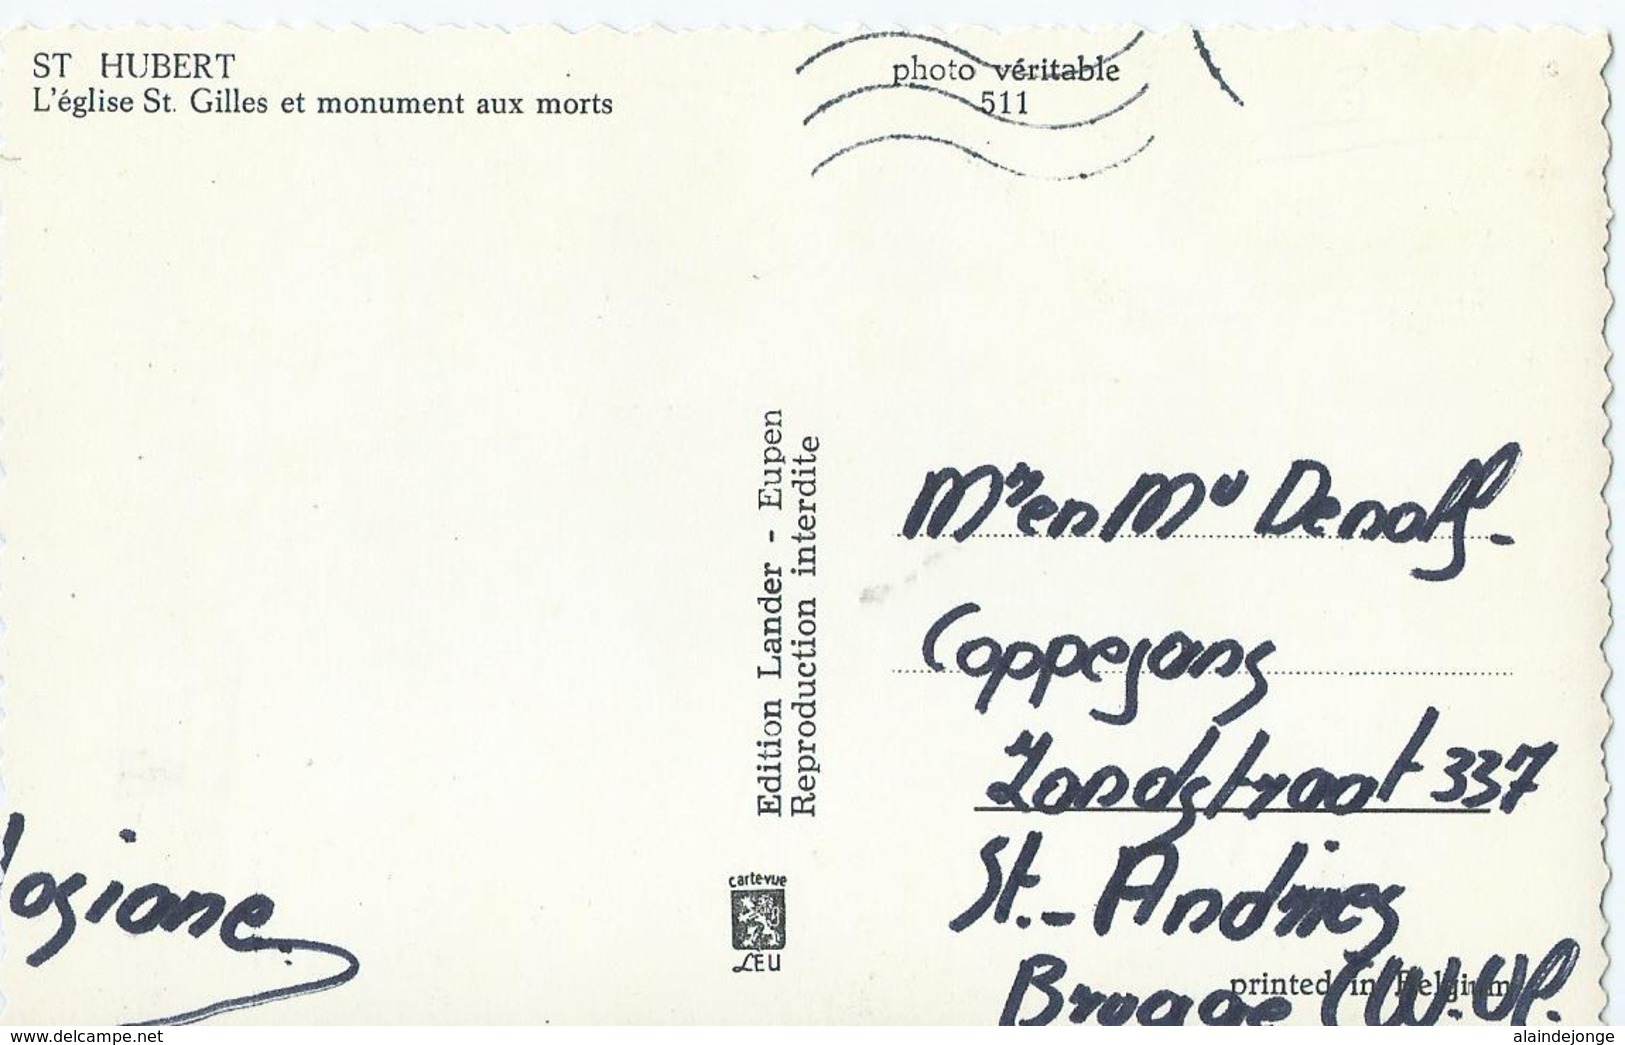 ST HUBERT
L'église St. Gilles et monument aux morts
photo véritable
511
Edition Lander - Eupen
Reproduction interdite
carte-vue
LEU
Josiane
Mr en Mv Denolf-
Coppejans
Zandstraat 337
St.-Andries
Brugge (W.Vl.
printed in Belgium
www.delcampe.net
alaindejonge